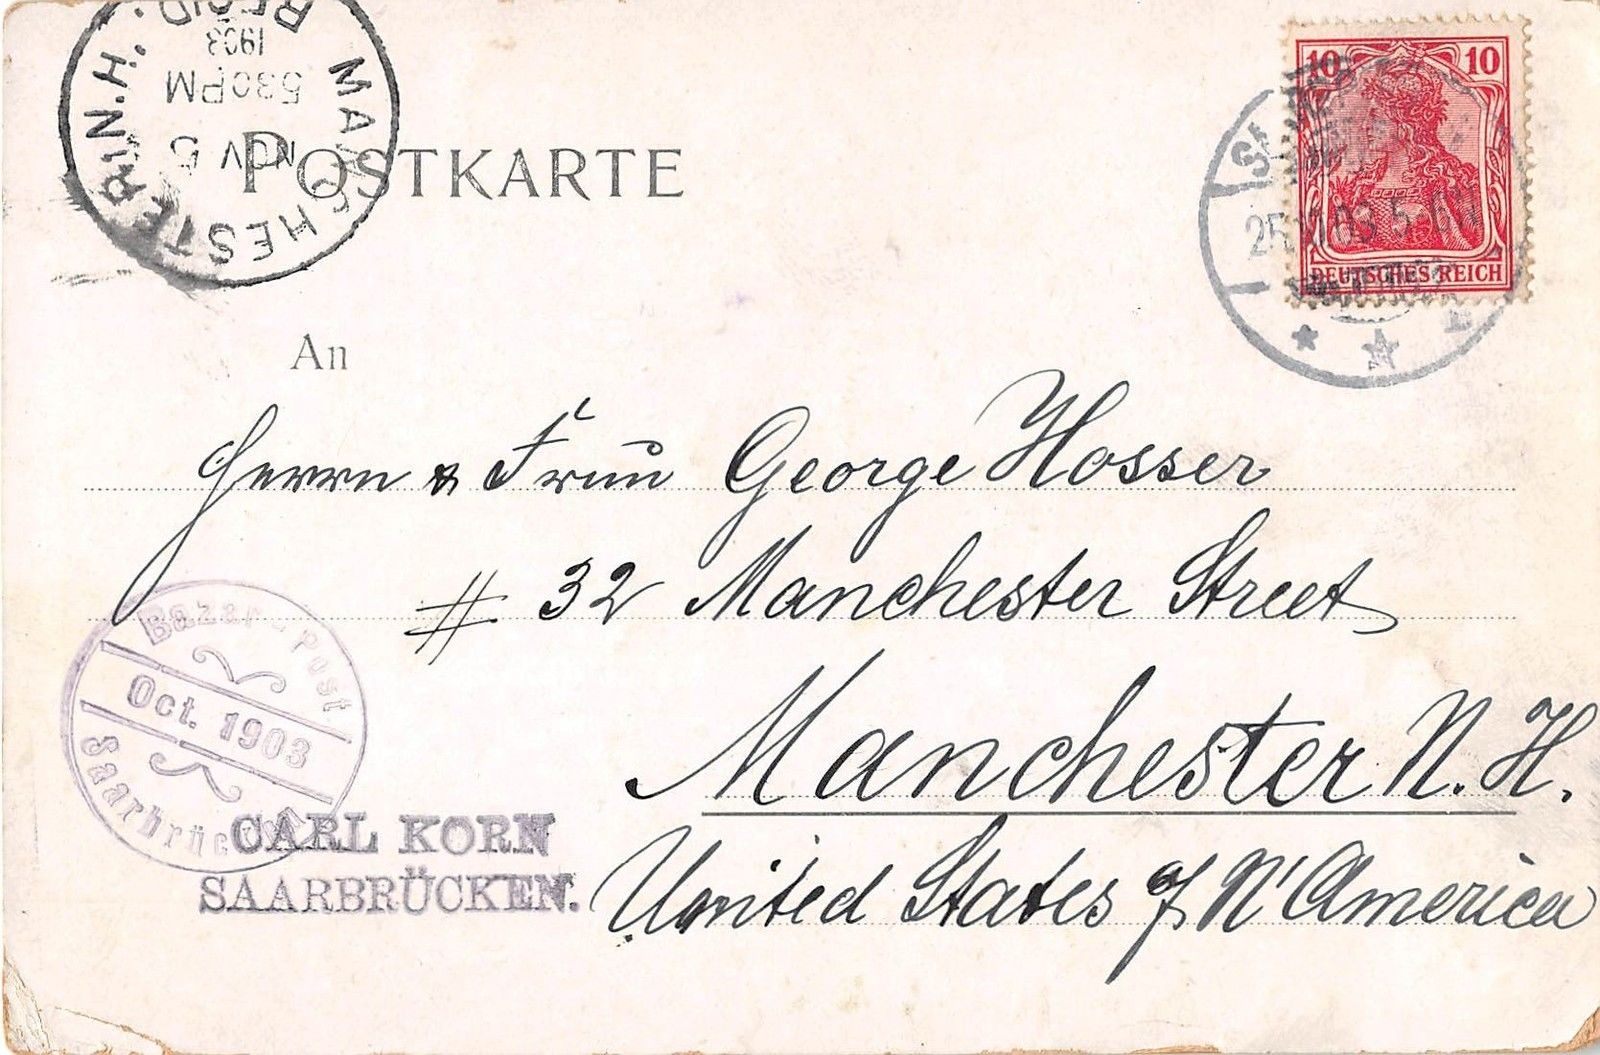 MANCHESTER, N.H. REC'D.
NOV 5
530PM
1903
POSTKARTE
10 10
DEUTSCHES REICH
25.10.03. 5-6N
An
Herrn & Frau George Hosser
# 32 Manchester Street
Manchester N. H.
United States of N' America
Bazar-Post
Oct. 1903
Saarbrücken
CARL KORN
SAARBRÜCKEN.